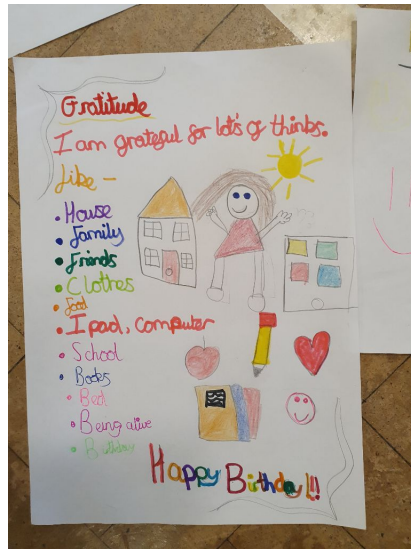 Gratitude
I am grateful for lots of thinks.
Like -
• House
• Family
• Friends
• Clothes
• food
• Ipad, computer
• School
• Books
• Bed
• Being alive
Happy Birthday!!!